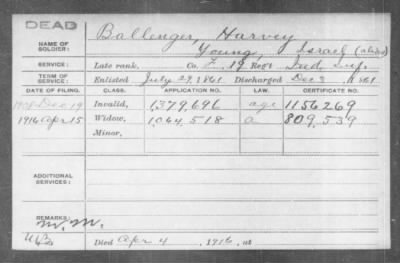 DEAD
NAME OF SOLDIER: Ballenger, Harvey
Young, Israel (alias)
SERVICE: Late rank, Co. F. 19 Reg't Ind Inf.
TERM OF SERVICE: Enlisted July 29, 1861 Discharged Dec 3, 1861
DATE OF FILING. CLASS. APPLICATION NO. LAW. CERTIFICATE NO.
1908 Dec 19 Invalid, 1,379,696 age 1156269
1916 Apr 15 Widow, 1,064,518 a 809,539
Minor,
ADDITIONAL SERVICES:
REMARKS: M. M.
Died Apr 4, 1916, at